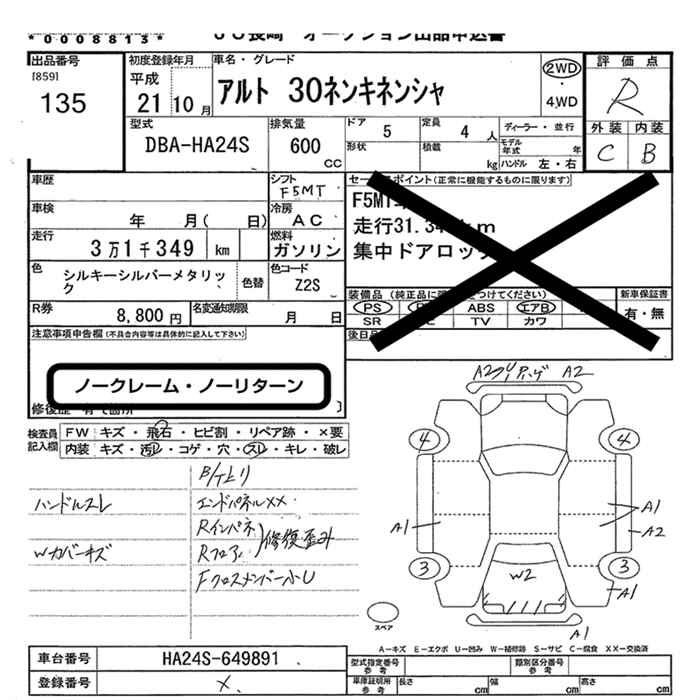 *0008813*
JU長崎 オークション出品申込書
出品番号
[859]
135
初度登録年月
平成
21年10月
車名・グレード
アルト 30ネンキネンシャ
2WD
・
4WD
評価点
R
外装 内装
C B
型式
DBA-HA24S
排気量
600
cc
ドア 5
定員 4人
ディーラー・並行
形状
積載 kg
モデル年式 年
ハンドル 左・右
車歴
シフト
F5MT
セールスポイント(正常に機能するものに限ります)
F5MT
走行31.34 km
集中ドアロック
車検
年 月( 日)
冷房
AC
走行
3万1千349 km
燃料
ガソリン
色
シルキーシルバーメタリック
色替
色コード
Z2S
装備品(純正品に つけてください)
新車保証書
PS ABS エアB
有・無
SR TV カワ
R券
8,800円
名変通知期限
月 日
後日
注意事項申告欄(不具合内容等は具体的に記入して下さい)
ノークレーム・ノーリターン
修復歴 有 箇所 ]
検査員記入欄
FW キズ・飛石・ヒビ割・リペア跡・×要
内装 キズ・汚レ・コゲ・穴・スレ・キレ・破レ
B/Tヒリ
ハンドルスレ
エンドパネルXX
Rインパネ
Rフロア
修復歪み
Wカバーキズ
Fクロスメンバー小U
A2 A2
4 4
A1 A1
A2
3 3
W2
A1
A1
スペア
A-キズ E-エクボ U-凹み W-補修跡 S-サビ C-腐食 XX-交換済
車台番号
HA24S-649891
登録番号
×
型式指定番号
参考
類別区分番号
参考
車庫証明所
参考
長さ cm
幅 cm
高さ cm